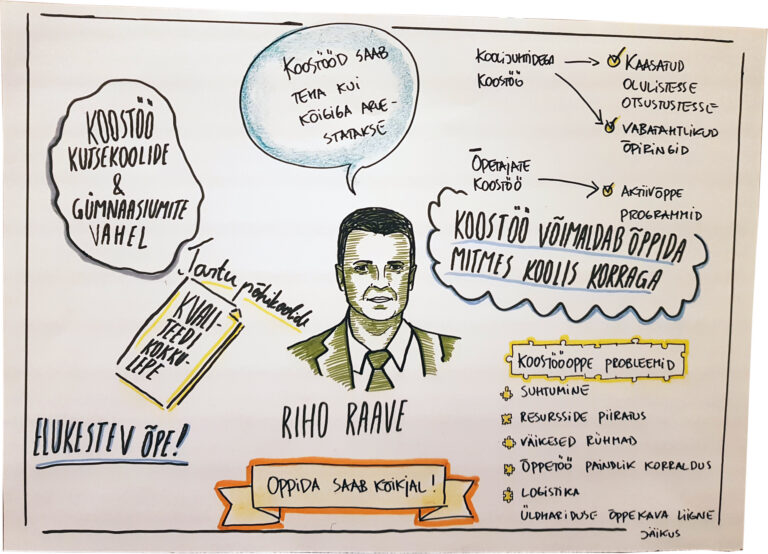 KOOSTÖÖ
KUTSEKOOLIDE
&
GÜMNAASIUMITE
VAHEL
KOOSTÖÖD SAAB
TEHA KUI
KÕIGIGA ARVE-
STATAKSE
KOOLIJUHTIDEGA
KOOSTÖÖ
KAASATUD
OLULISTESSE
OTSUSTUSTESSE
VABATAHTLIKUD
ÕPIRINGID
ÕPETAJATE
KOOSTÖÖ
AKTIIVÕPPE
PROGRAMMID
KOOSTÖÖ VÕIMALDAB ÕPPIDA
MITMES KOOLIS KORRAGA
Tartu põhikoolide
KVALI-
TEEDI
KOKKU-
LEPE
ELUKESTEV ÕPE!
RIHO RAAVE
ÕPPIDA SAAB KÕIKJAL!
KOOSTÖÖÕPPE PROBLEEMID
SUHTUMINE
RESURSSIDE PIIRATUS
VÄIKESED RÜHMAD
ÕPPETÖÖ PAINDLIK KORRALDUS
LOGISTIKA
ÜLDHARIDUSE ÕPPEKAVA LIIGNE
JÄIKUS